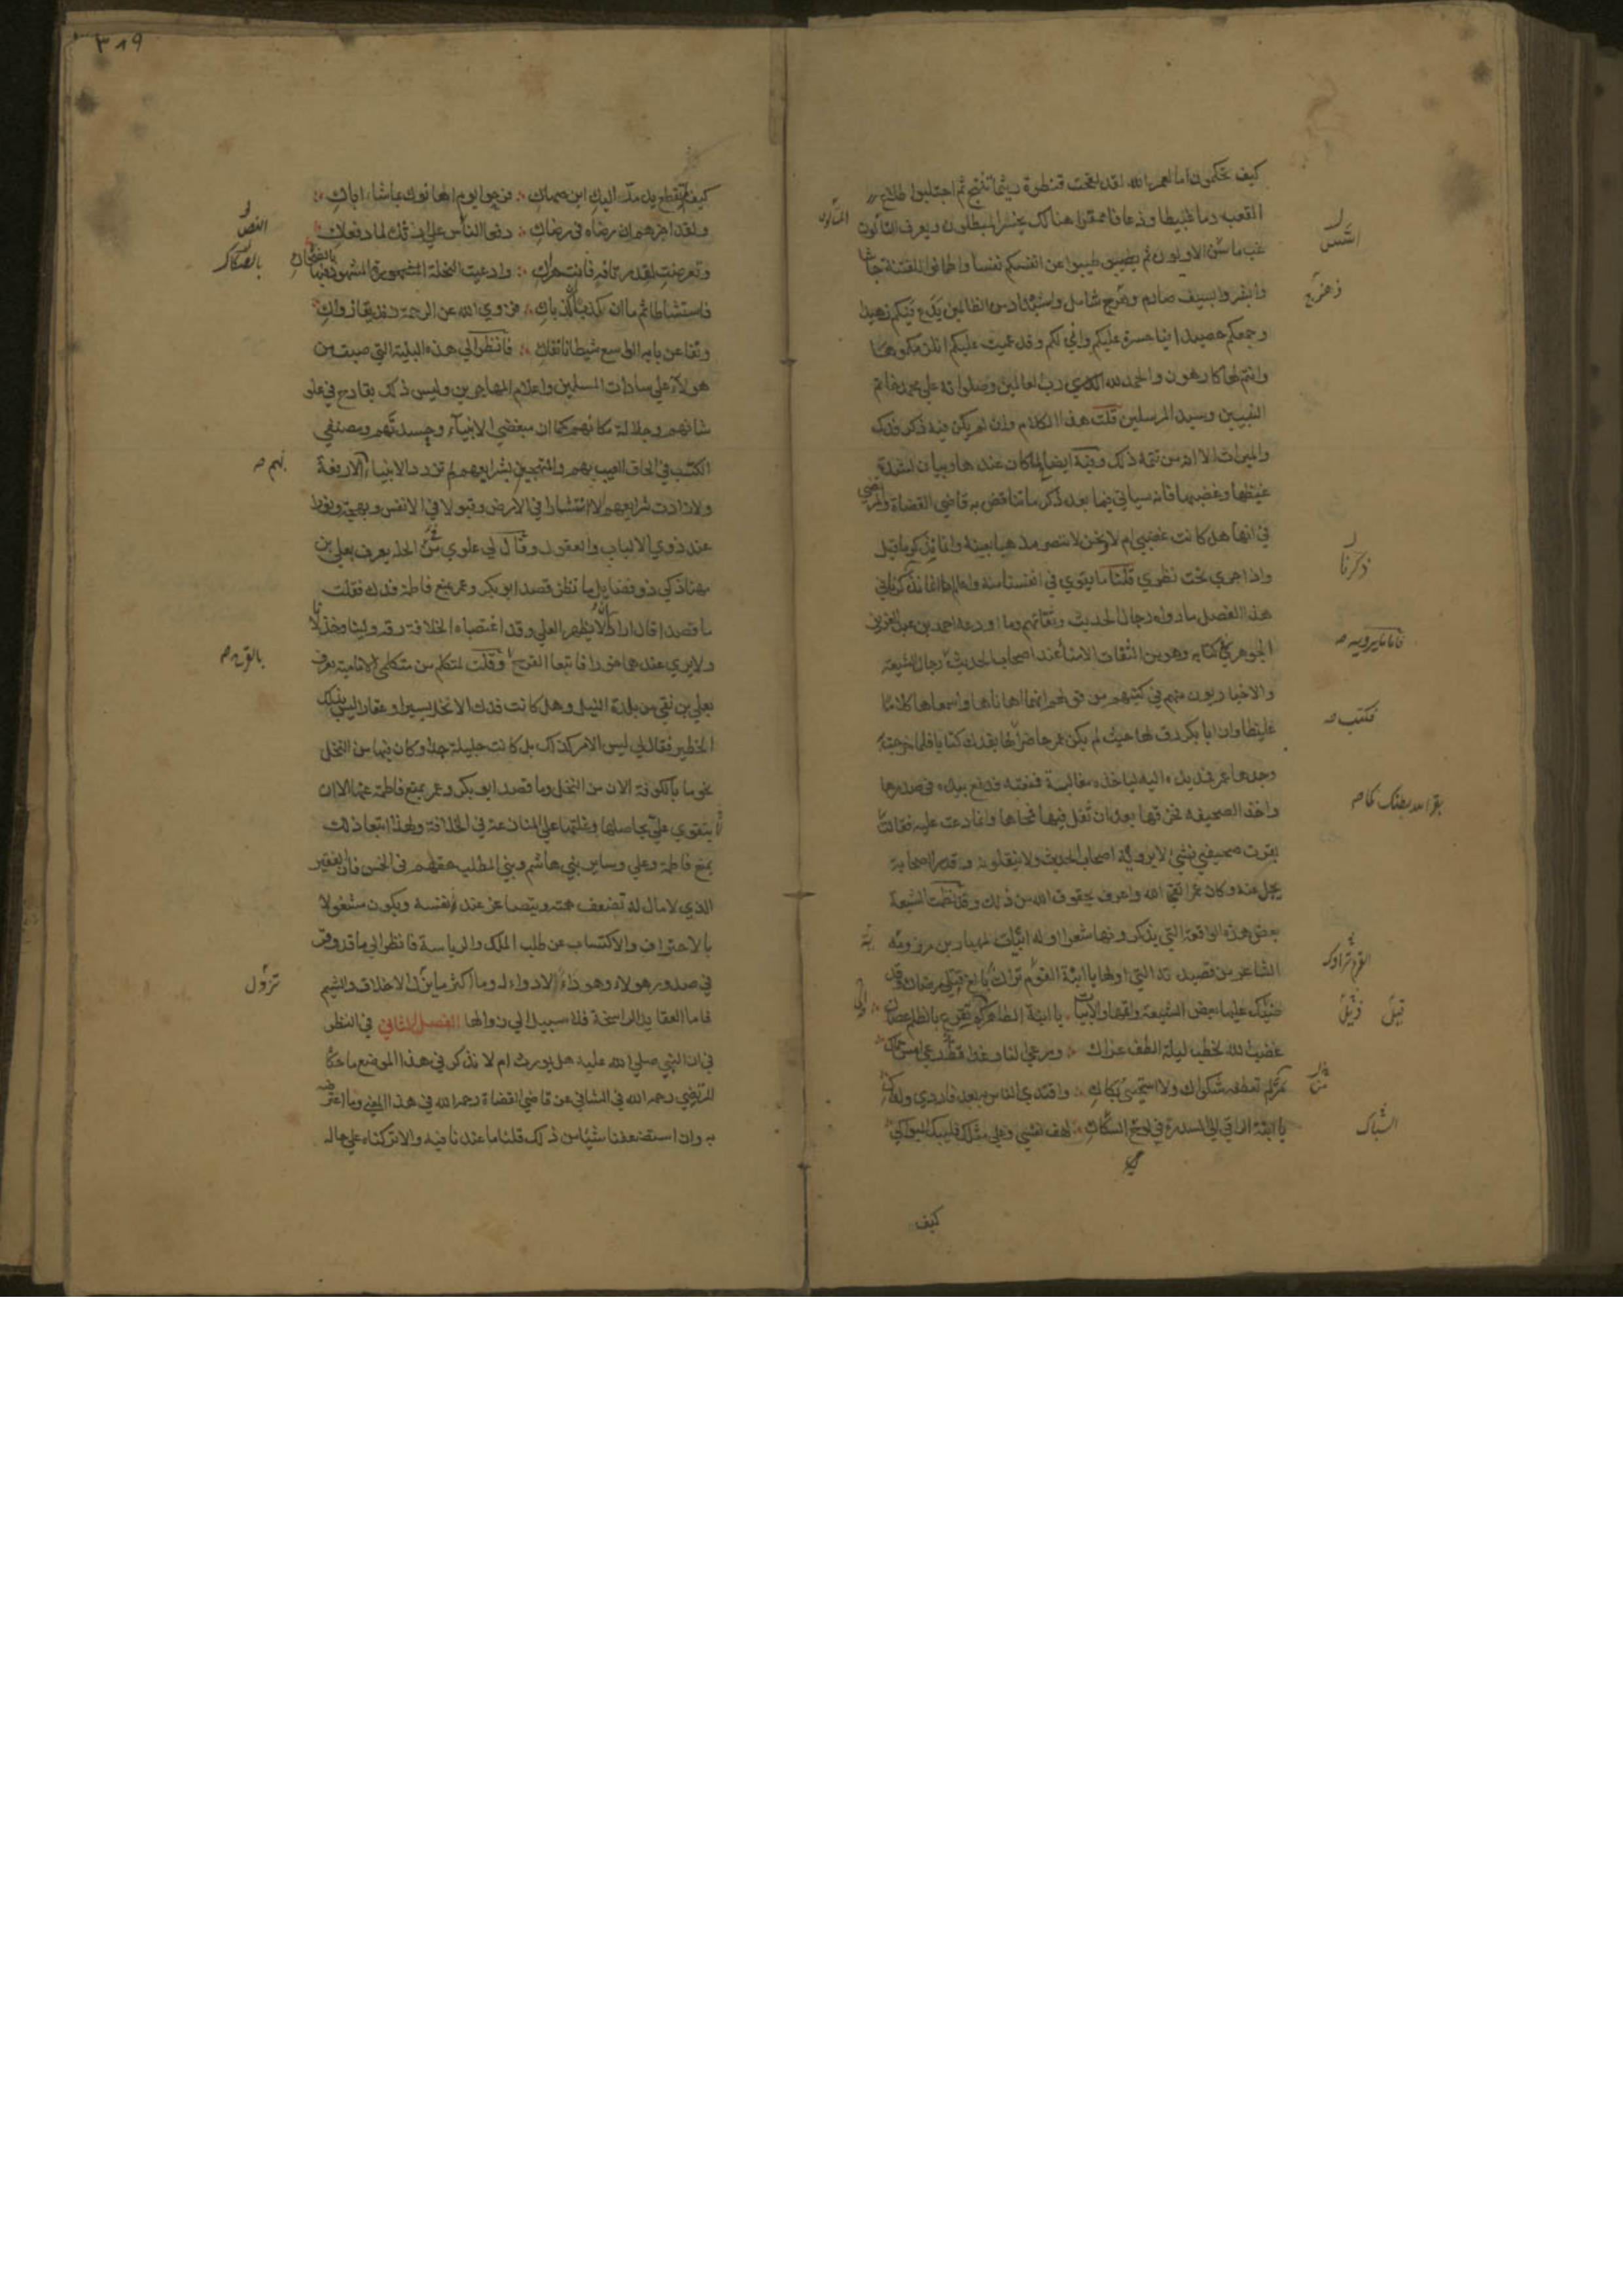 كيف تحكمون اما لعمر الله لقد لقحت فنظرة ريثما تنتج ثم احتلبوا طلاع
القعب دما عبيطا وذعافا ممقرا هنالك يخسر المبطلون ويعرف التالون
غب ما سن الاولون ثم طيبوا عن انفسكم نفسا واطمانوا للفتنة جاشا
وابشروا بسيف صارم وهرج شامل واستبداد من الظالمين يدع فيئكم زهيدا
وجمعكم حصيدا فيا حسرة عليكم واني لكم وقد عميت عليكم انلزمكموها
وانتم لها كارهون والحمد لله رب العالمين وصلواته على محمد خاتم
النبيين وسيد المرسلين قلت هذا الكلام وان لم يكن فيه ذكر فدك
والميراث الا انه من تتمة ذلك وفيه ايضاح لما كان عندها وبيان لشدة
غيظها وغضبها فانه سياتي فيما بعد ذكر ما يناقض به قاضي القضاة والمرتضى
في انها هل كانت غضبى ام لا ونحن لا ننصر مذهبا بعينه وانما نذكر ما قيل
واذا جرى بحث نظري قلنا ما يقوى في انفسنا منه واعلم انا انما نذكر في
هذا الفصل ما رواه رجال الحديث وثقاتهم وما اودعه احمد بن عبد العزيز
الجوهري كتابه وهو من الثقات الامناء عند اصحاب الحديث رجال الشيعة
والاخباريون منهم في كتبهم من قولهم انهما اهاناها واسمعاها كلاما
غليظا وان ابا بكر رق لها حيث لم يكن عمر حاضرا لها بفدك كتابا فلما خرجت به
وجدها عمر فمد يده اليه لياخذه مغالبة فمنعته فدفع بيده في صدرها
واخذ الصحيفة فخرقها بعد ان تفل فيها فمحاها وانها دعت عليه فقالت
بقرت صحيفتي فشيء لا يرويه اصحاب الحديث ولا ينقلونه وقدر الصحابة
يجل عنه وكان عمر اتقى لله واعرف بحقوق الله من ذلك وقد نظمت الشيعة
بعض هذه الواقعة التي يذكرونها شعرا اوله ابيات لمهيار بن مرزويه
الشاعر من قصيدته التي اولها يا ابنة القوم تراك بالغ قتلي رضاك وقد
ذيلك عليها بعض الشيعة واتمها والابيات يا ابنة الطاهر كم تقرع بالظلم عصاك
غضب الله لخطب ليلة الطف عراك ورعى النار غدا قط رعى امس حماك
مر لم يعطفه شكوى ولا استحيى بكاك واقتدى الناس به بعد فاردى ولداك
يا ابنة الراقي الى السدرة في لوح السكاك لهف نفسي وعلى مثلك فليبك البواكي
كيف
المتالون
اسس
وهرج
ذكرنا
فاما ما يرويه
فكتب
القوم تراك
قيل
الشباك
٣٨٩
كيف لم تقطع يد مد اليك ابن صحاك فرحوا يوم اهانوك بما ساء اباك
ولقد اخبرهم ان رضاه في رضاك دفعا النص على ارثك لما دفعاك
وتعرضت لقدر تافه فانتهراك وادعيت النحلة المشهود فيها
فاستشاطا ثم ما ان كذبا ان كذباك فزوى الله عن الرحمة زنديقا زواك
ونفى عن بابه الواسع شيطانا نفاك فانظر الى هذه البلية التي صبت من
هولاء على سادات المسلمين واعلام المهاجرين وليس ذلك بقادح في علو
شانهم وجلالة مكانهم كما ان مبغضي الانبياء وحسدتهم ومصنفي
الكتب في الحاق العيب بهم والتهجين لشرايعهم لم تزدد الانبياء الا رفعة
ولا زادت شرايعهم الا انتشارا في الارض وقبولا في الانفس وبهجة ونورا
عند ذوي الالباب والعقول وقال لي علوي من الحلة يعرف بعلي بن
مهنا ذكي ذو فضايل ما تظن قصد ابي بكر وعمر بمنع فاطمة فدك فقلت
ما قصدا قال ارادا ان لا يظهرا لعلي وقد اغتصباه الخلافة رقة ولينا وخذلانا
ولا يرى عندهما خورا فاتبعا القرح وقلت لمتكلم من متكلمي الامامية يعرف
بعلي بن تقي من بلدة النيل وهل كانت فدك الا نخلا يسيرا وعقارا ليس بذلك
الخطير فقال لي ليس الامر كذلك بل كانت جليلة جدا وكان فيها من النخل
نحو ما بالكوفة الان من النخل وما قصد ابو بكر وعمر بمنع فاطمة عنها الا ان
لا يتقوى علي بحاصلها وغلتها على المنازعة في الخلافة ولهذا اتبعا ذلك
بمنع فاطمة وعلي وساير بني هاشم وبني المطلب حقهم في الخمس فان الفقير
الذي لا مال له تضعف همته ويتصاغر عند نفسه ويكون مشغولا
بالاحتراف والاكتساب عن طلب الملك والرياسة فانظر الى ما قد وقر
في صدور هولاء وهو داء لا دواء له وما اكثر ما يزل الاخلاق والشيم
فاما العقايد الراسخة فلا سبيل الى زوالها الفصل الثاني في النظر
في ان النبي صلى الله عليه هل يورث ام لا نذكر في هذا الموضع ما حكاه
المرتضى رحمه الله في الشافي عن قاضي القضاة رحمه الله في هذا المعنى وما اعترضه
به وان استضعفنا شيئا من ذلك قلنا ما عندنا فيه والا تركناه على حاله
النص
بالصكاك
بالقرح
تزول